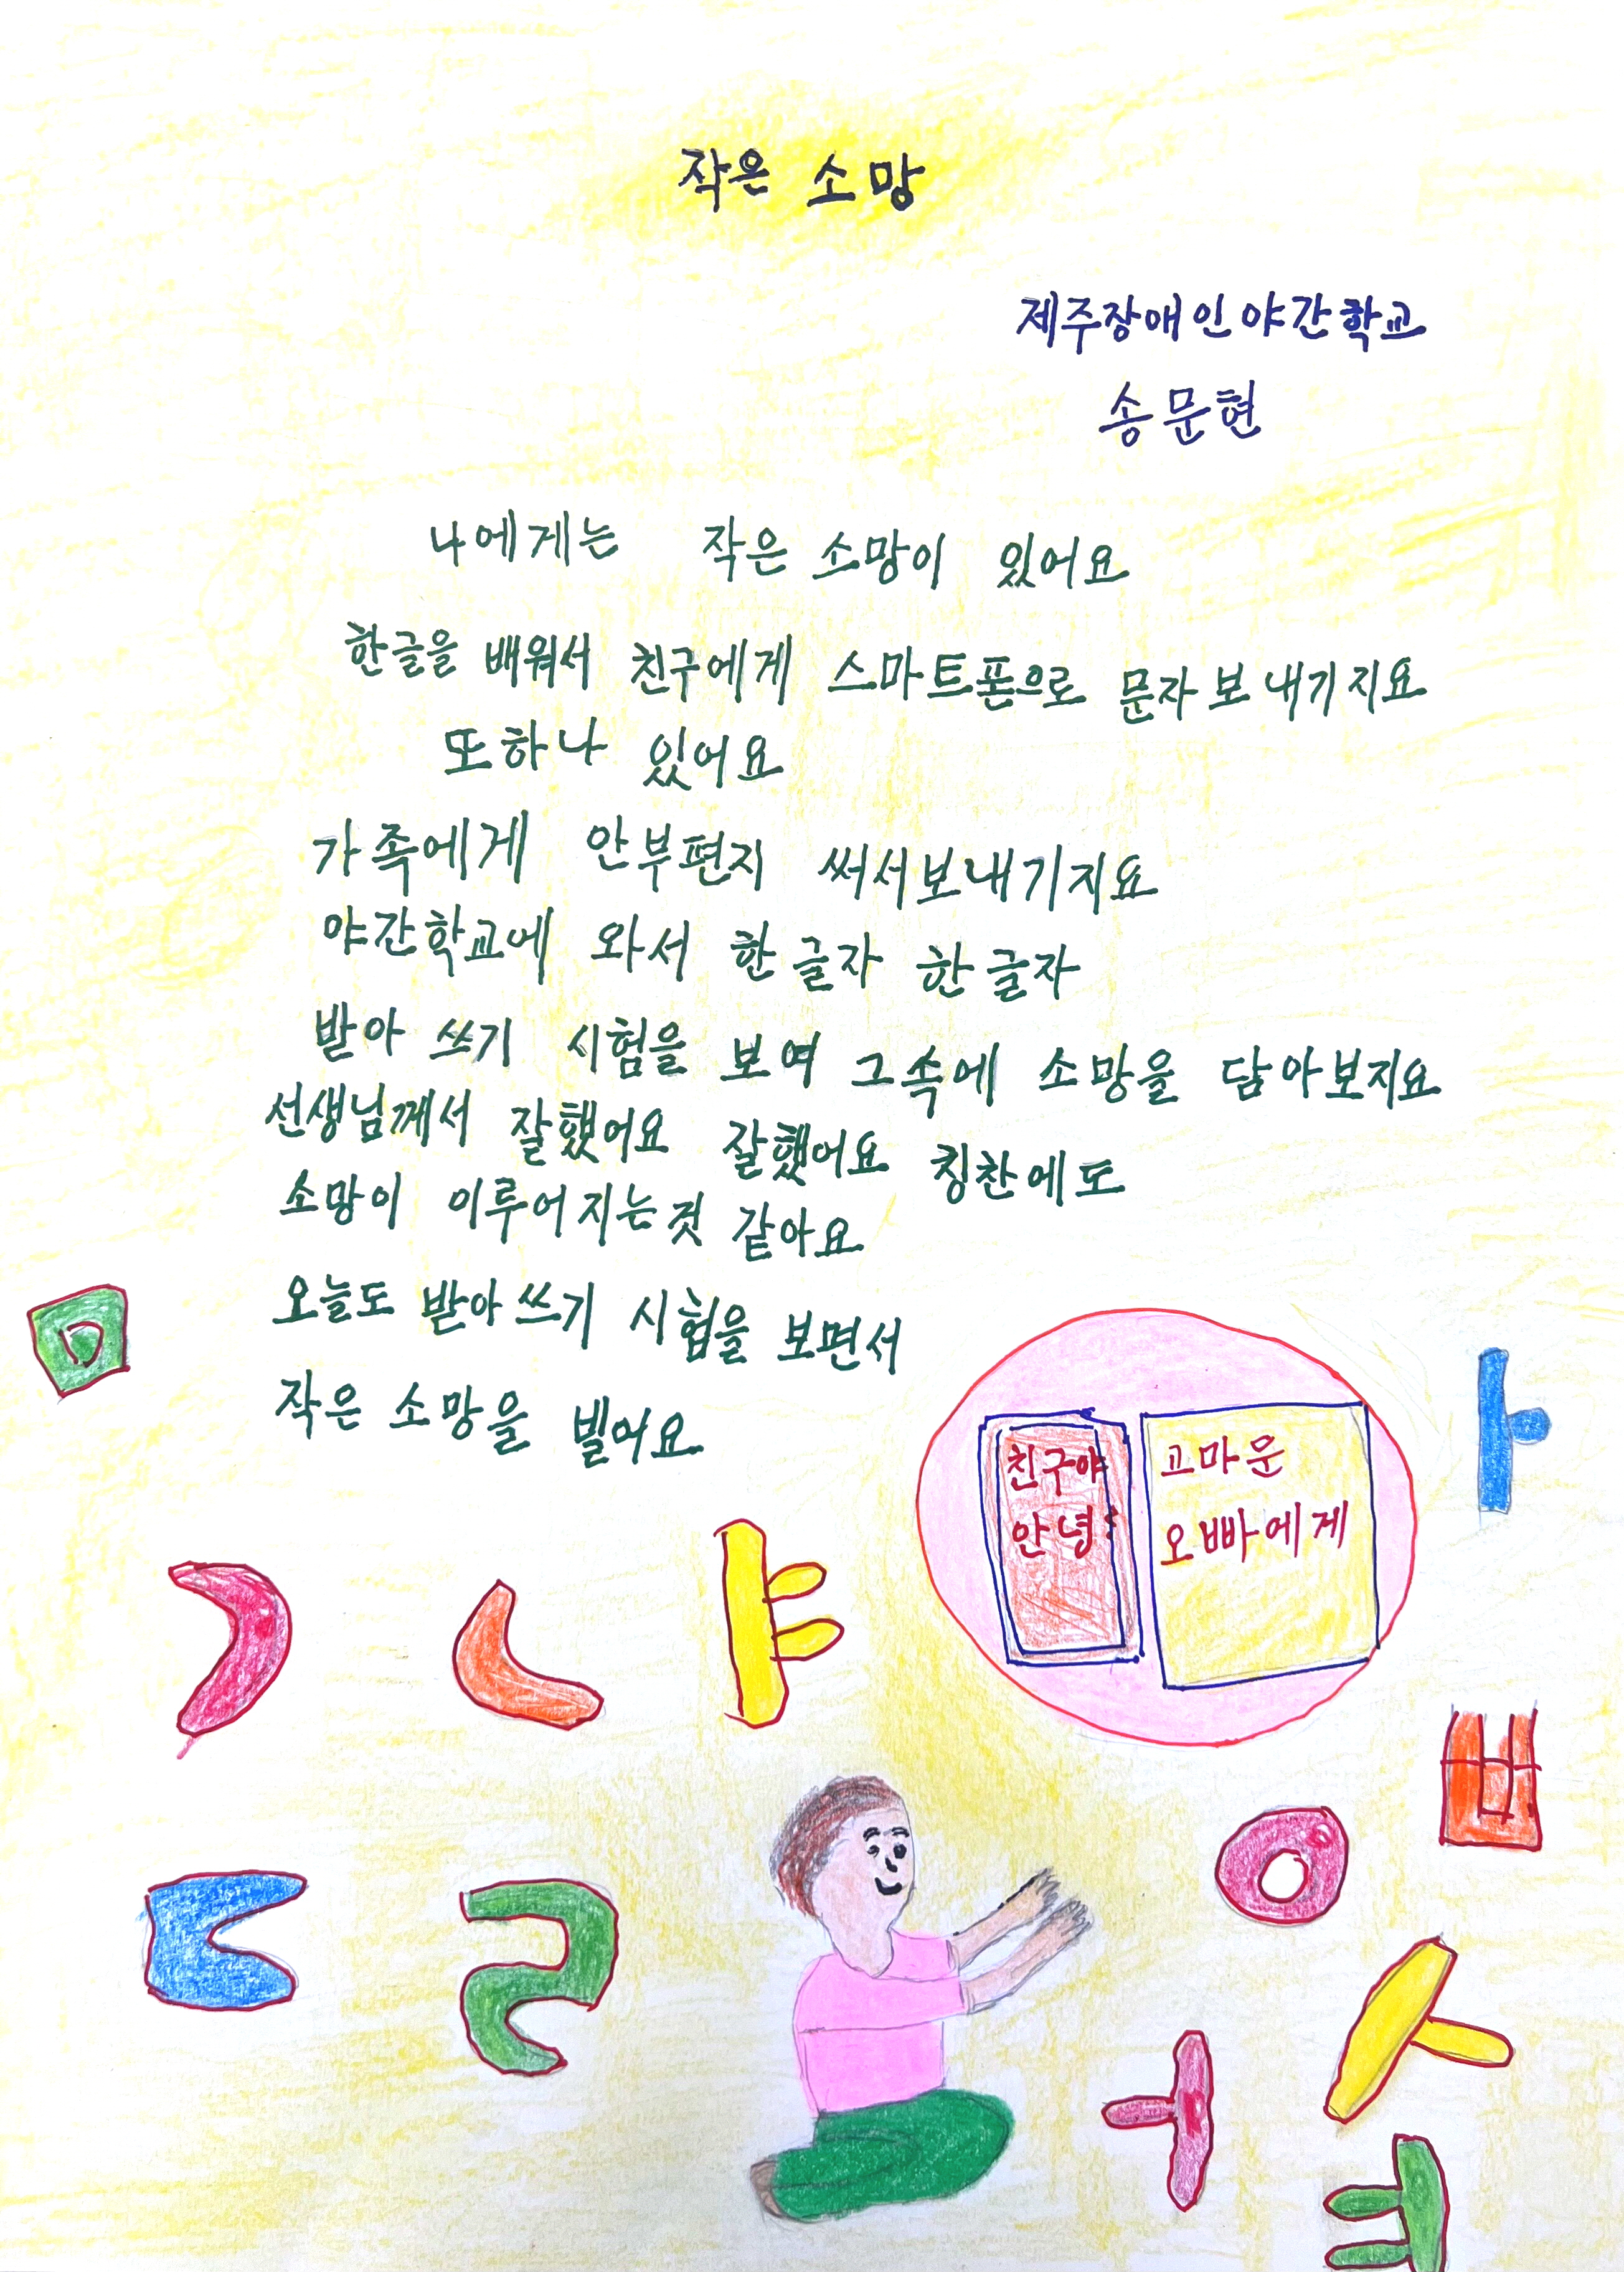 작은 소망
제주장애인야간학교
송문현
나에게는 작은 소망이 있어요
한글을 배워서 친구에게 스마트폰으로 문자보내기지요
또하나 있어요
가족에게 안부편지 써서보내기지요
야간학교에 와서 한글자 한글자
받아쓰기 시험을 보며 그속에 소망을 담아보지요
선생님께서 잘했어요 잘했어요 칭찬에도
소망이 이루어지는것 같아요
오늘도 받아쓰기 시험을 보면서
작은 소망을 빌어요
친구야
안녕!
고마운
오빠에게
ㅁ
ㅏ
ㄱ ㄴ ㅑ
ㅂ
ㄷ ㄹ
ㅇ
ㅏ
ㅓ
ㅕ